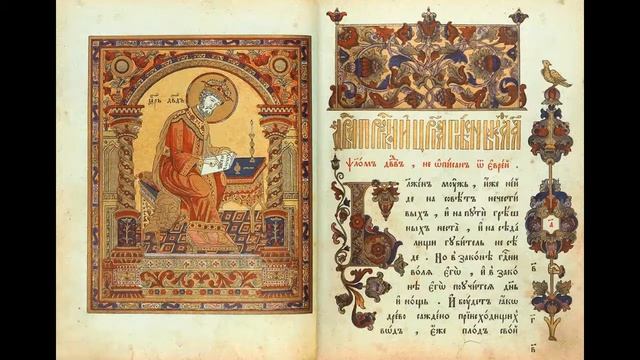 Цр҃ь Дв҃дъ
Ѱаломъ дв҃дъ, не ѡписанъ ѿ еврей.
Блаженъ мꙋжъ, иже не и
де на совѣтъ нечести
выхъ, и на пꙋти грѣш
ныхъ не ста, и на сѣда
лищи гꙋбитель не сѣ
де. Но в законѣ гдⷭ҇ни
волѧ егѡ, и в зако
нѣ егѡ поꙋчитсѧ день
и нощь. И бꙋдетъ ꙗкѡ
древо саждено при исходищихъ
водъ, еже плодъ свой